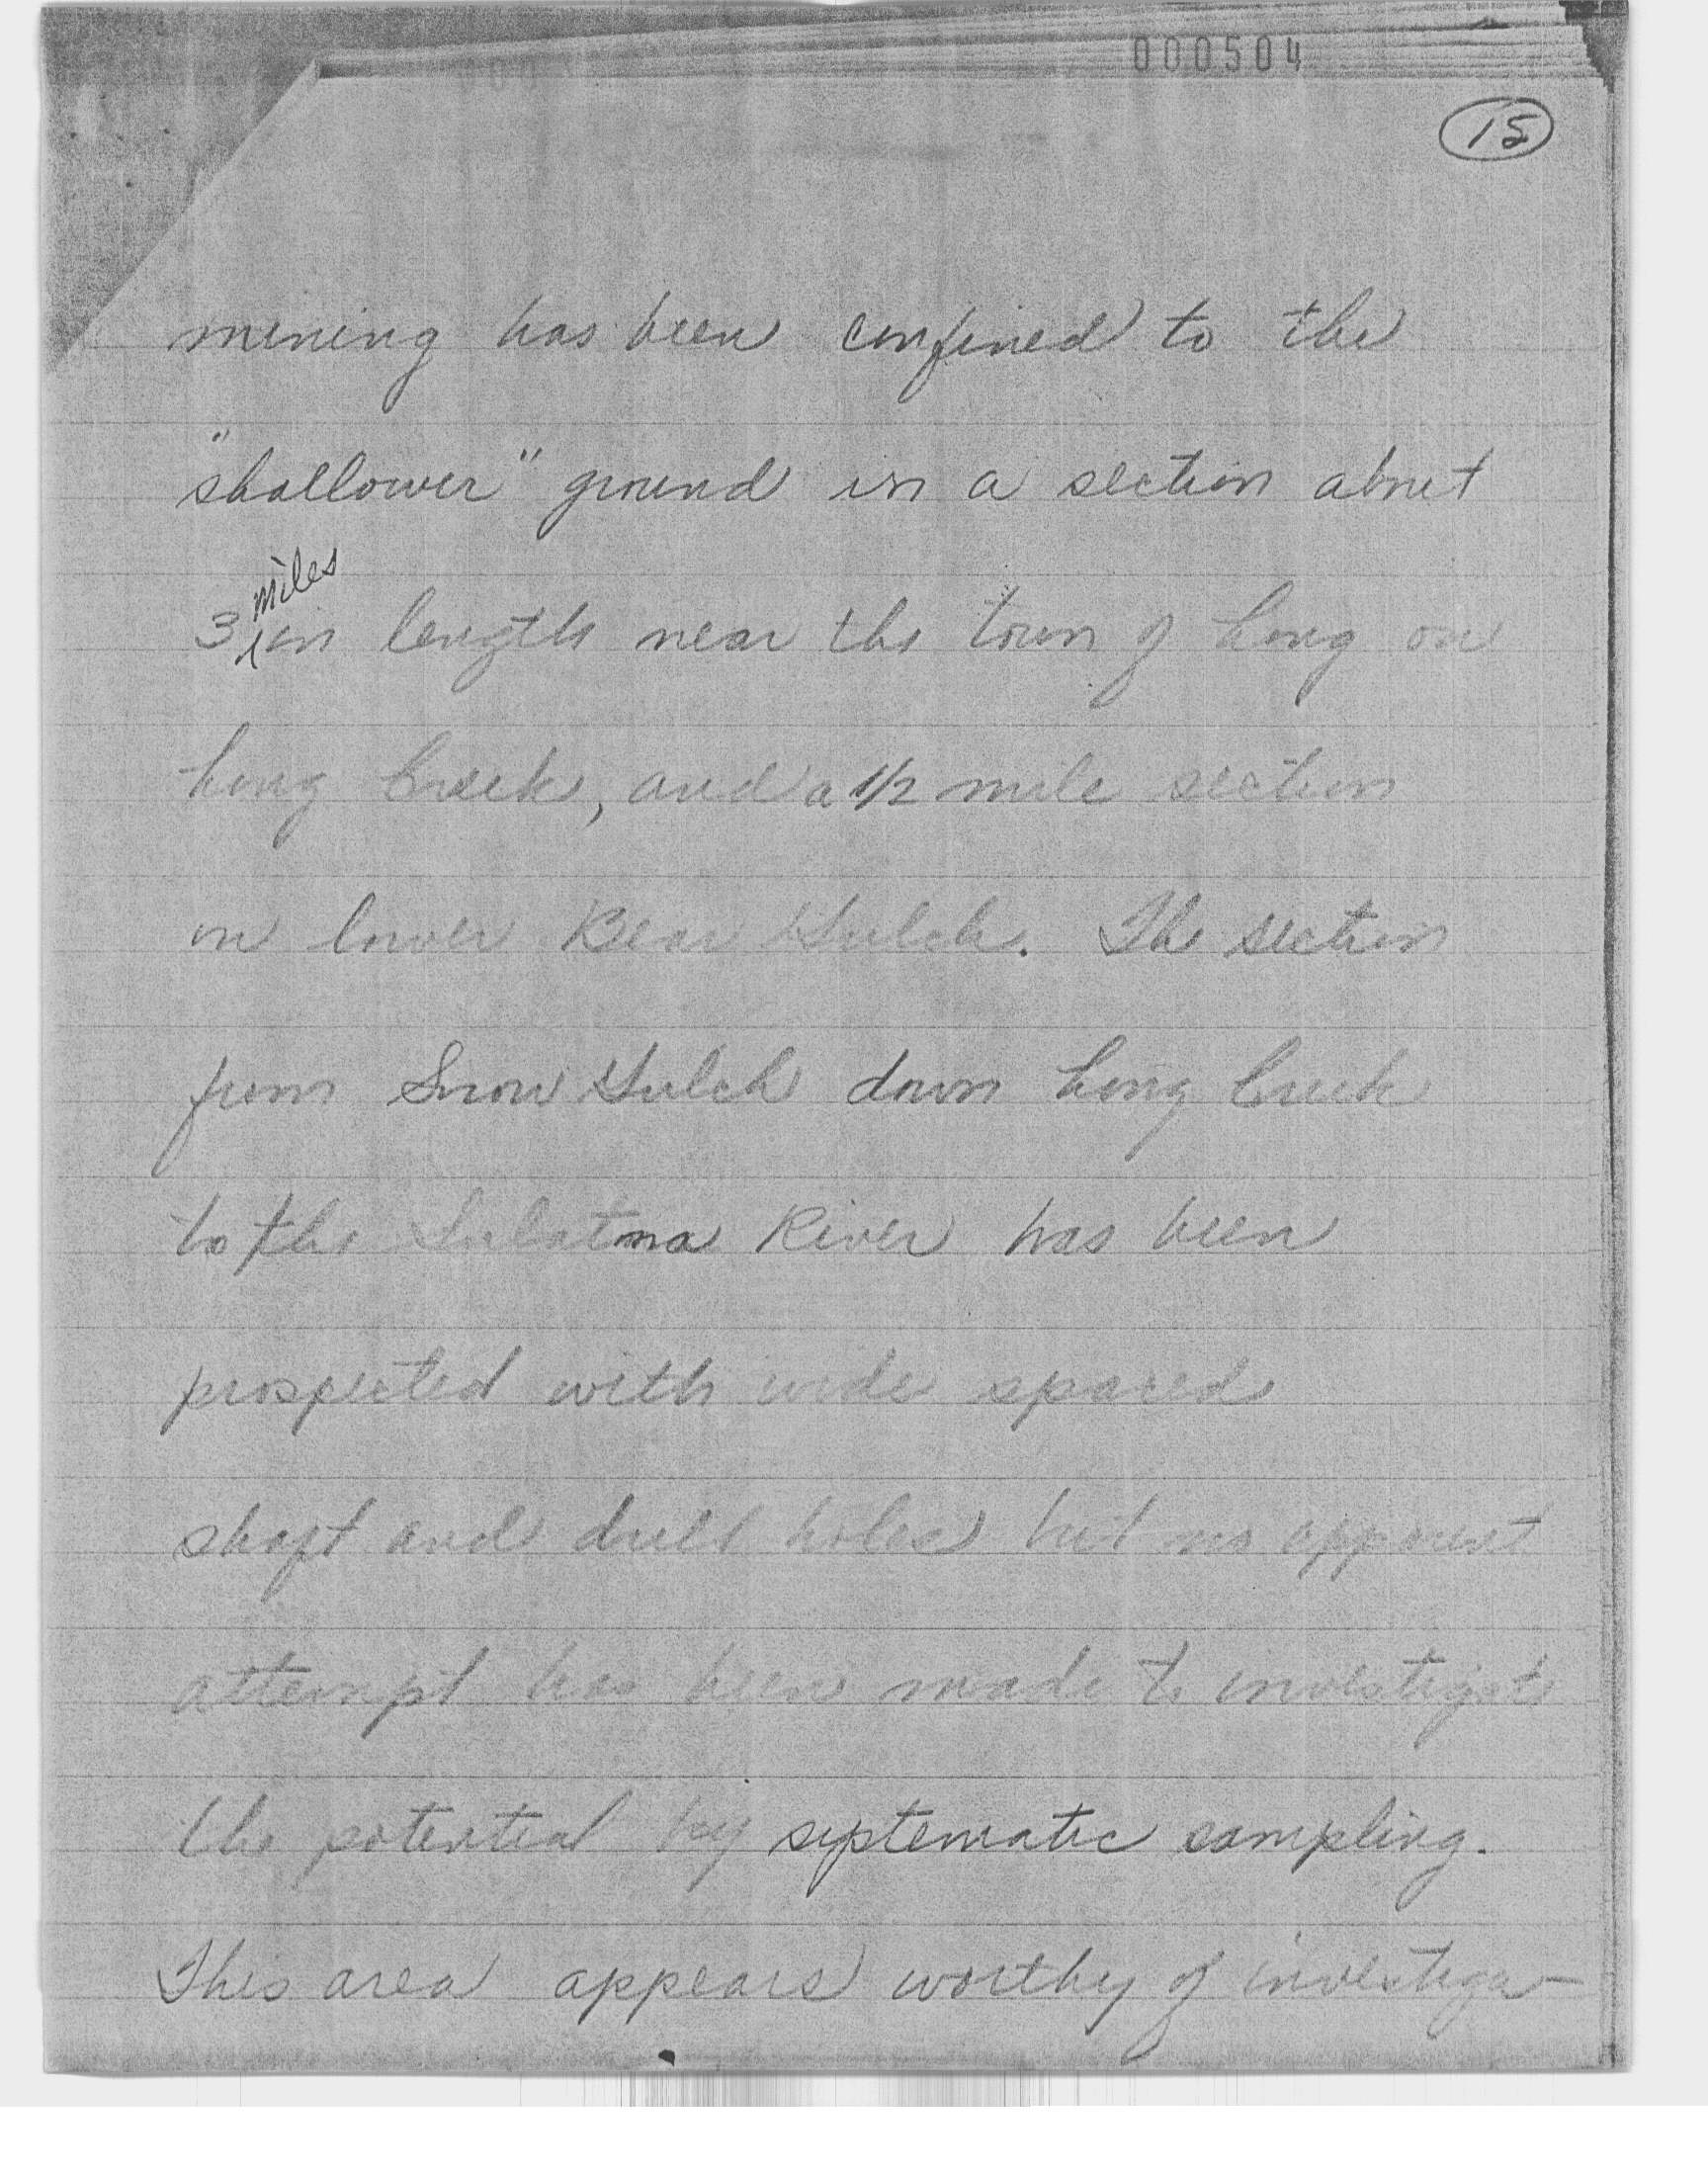 000504
15
mining has been confined to the
"shallower" ground in a section about
miles
3 in length near the town of Long on
Long Creek, and a 1/2 mile section
on lower Bear Gulch. The section
from Snow Gulch down Long Creek
to the Sulatna River has been
prospected with wide spaced
shaft and drill holes but no apparent
attempt has been made to investigate
the potential by systematic sampling.
This area appears worthy of investiga-